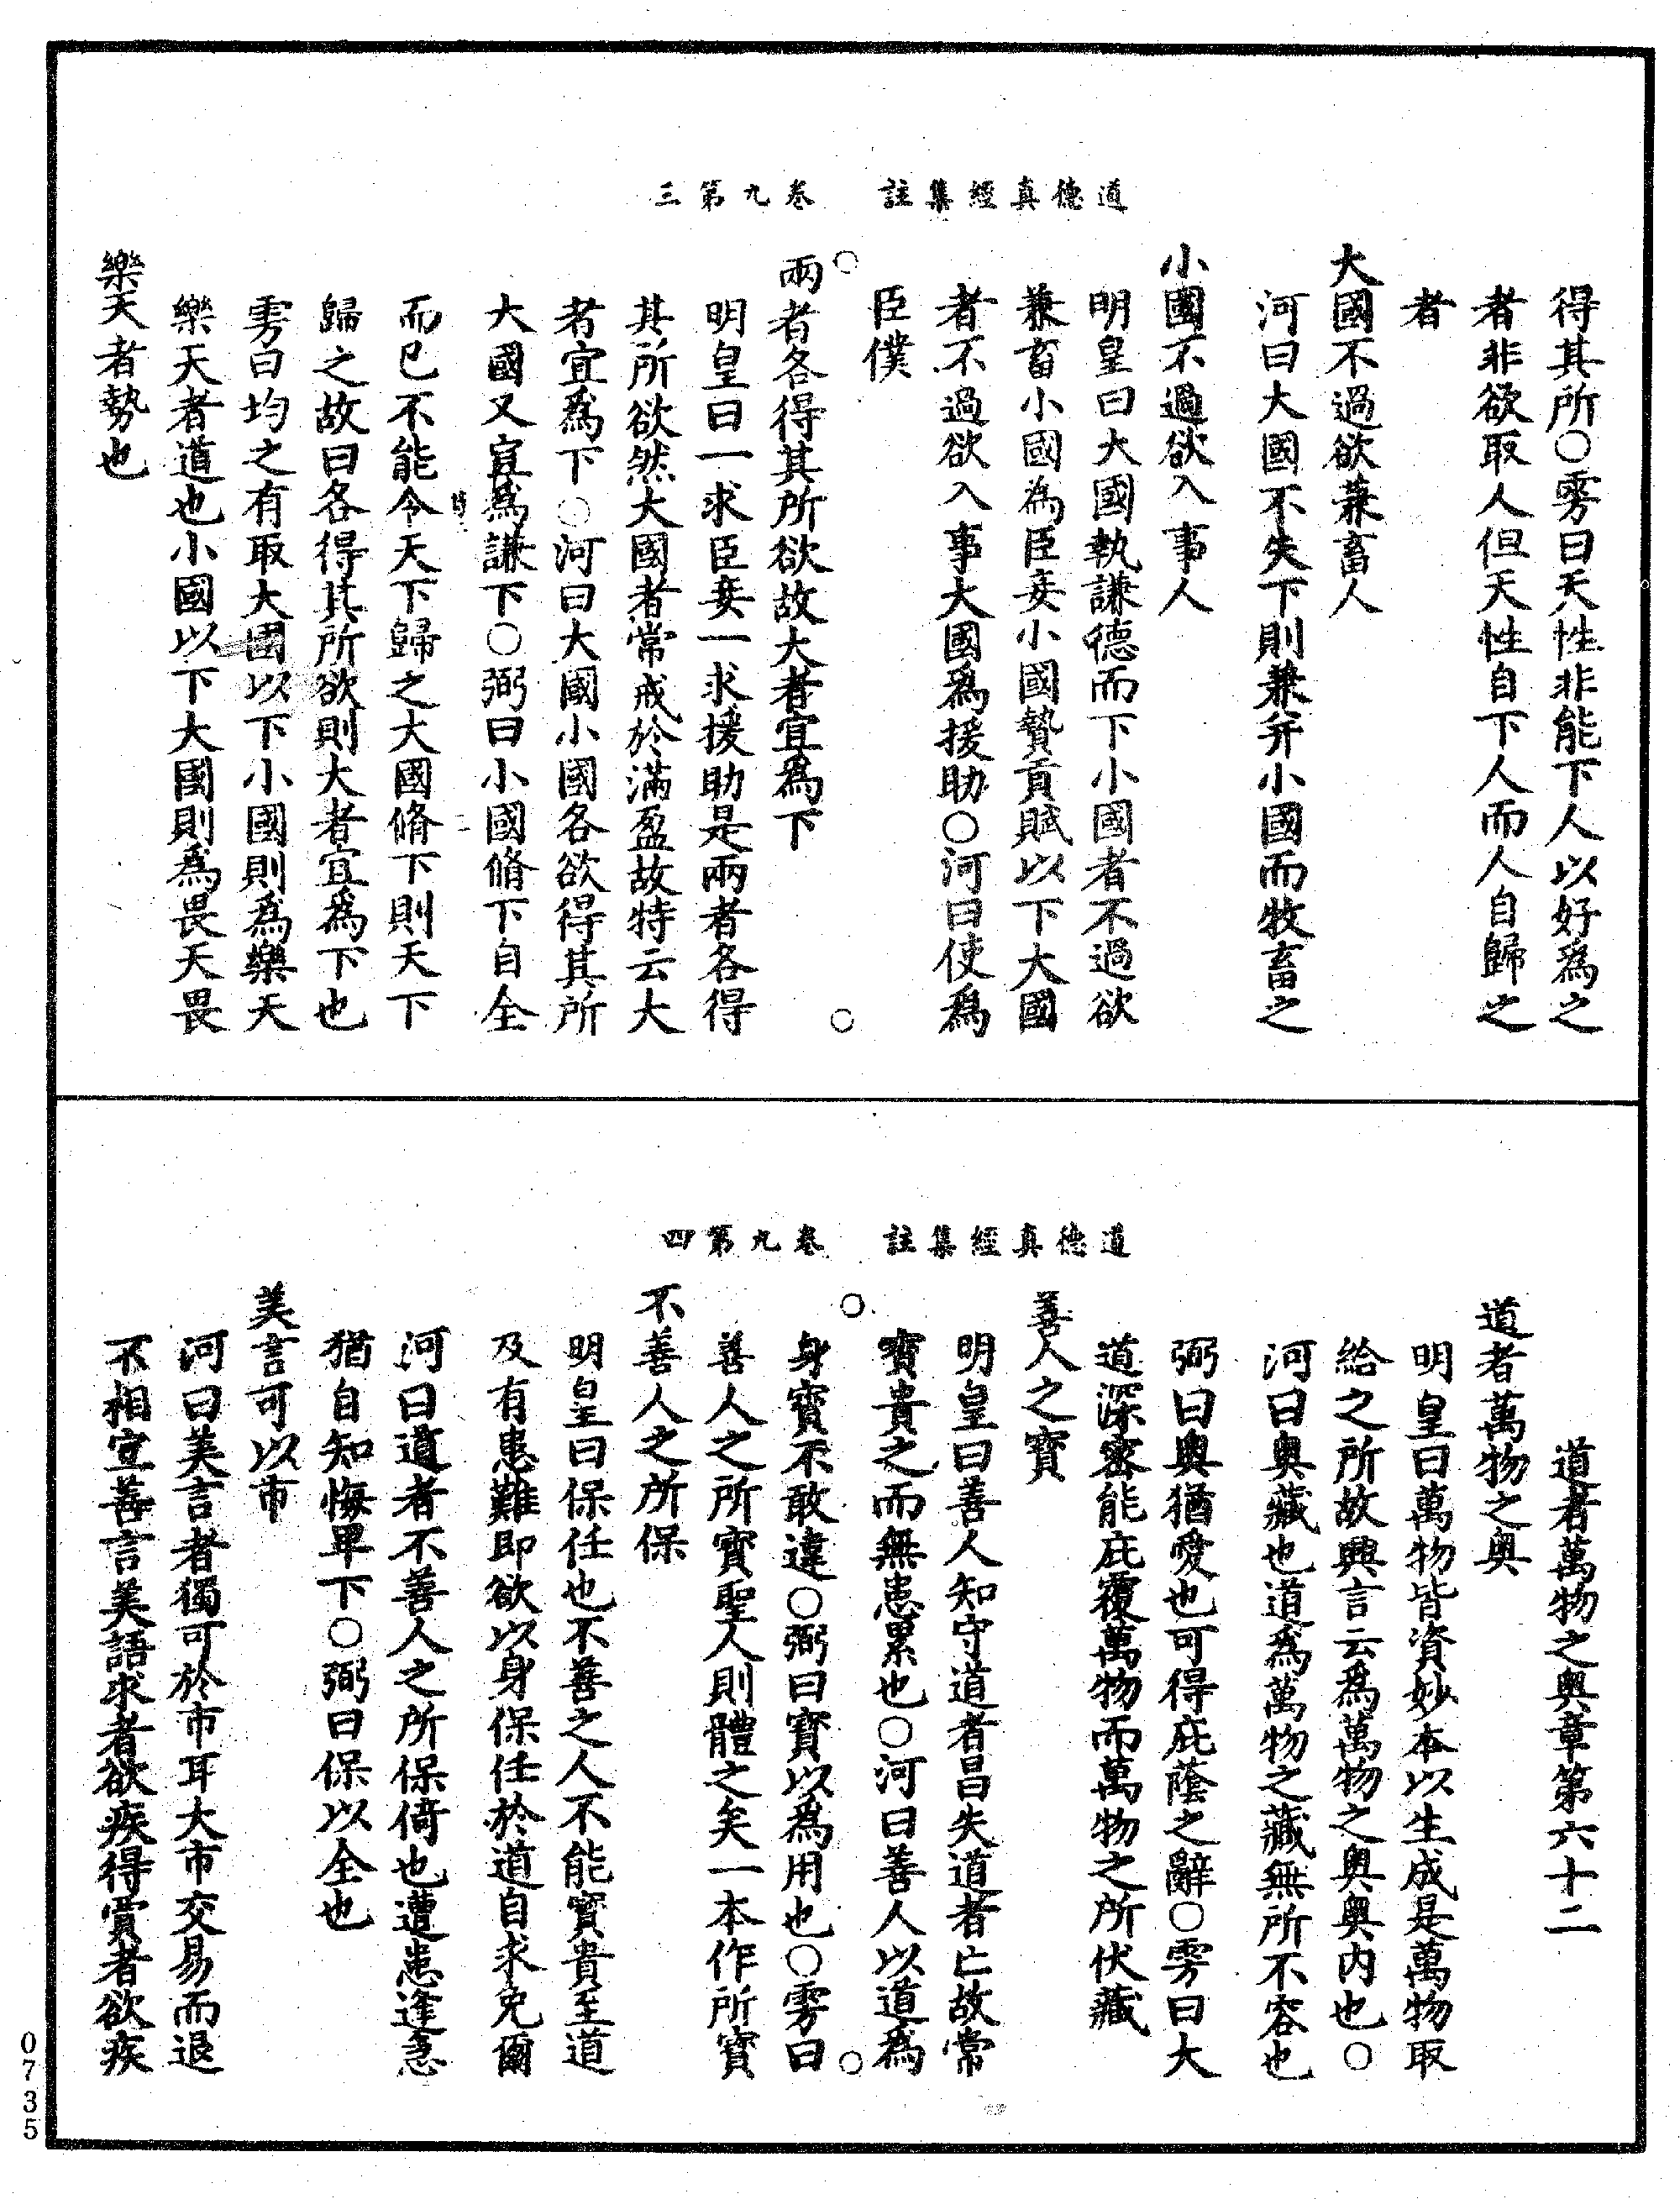 道德真經集註　卷九第三
得其所○雱曰天性非能下人以好爲之
者非欲取人但天性自下人而人自歸之
者
大國不過欲兼畜人
河曰大國不失下則兼并小國而牧畜之
小國不過欲入事人
明皇曰大國執謙德而下小國者不過欲
兼畜小國為臣妾小國贄貢賦以下大國
者不過欲入事大國爲援助○河曰使爲
臣僕
兩者各得其所欲故大者宜爲下
明皇曰一求臣妾一求援助是兩者各得
其所欲然大國者常戒於滿盈故特云大
者宜爲下○河曰大國小國各欲得其所
大國又宜爲謙下○弼曰小國脩下自全
而已不能令天下歸之大國脩下則天下
歸之故曰各得其所欲則大者宜爲下也
雱曰均之有取大國以下小國則爲樂天
樂天者道也小國以下大國則爲畏天畏
樂天者勢也
道德真經集註　卷九第四
道者萬物之奧章第六十二
道者萬物之奧
明皇曰萬物皆資妙本以生成是萬物取
給之所故興言云爲萬物之奧奧內也○
河曰奧藏也道爲萬物之藏無所不容也
弼曰奧猶愛也可得庇蔭之辭○雱曰大
道深密能庇覆萬物而萬物之所伏藏
善人之寶
明皇曰善人知守道者昌失道者亡故常
寶貴之而無患累也○河曰善人以道爲
身寶不敢違○弼曰寶以爲用也○雱曰
善人之所寶聖人則體之矣一本作所寶
不善人之所保
明皇曰保任也不善之人不能寶貴至道
及有患難即欲以身保任於道自求免爾
河曰道者不善人之所保倚也遭患逢急
猶自知悔卑下○弼曰保以全也
美言可以市
河曰美言者獨可於市耳大市交易而退
不相宜善言美語求者欲疾得賣者欲疾
0735